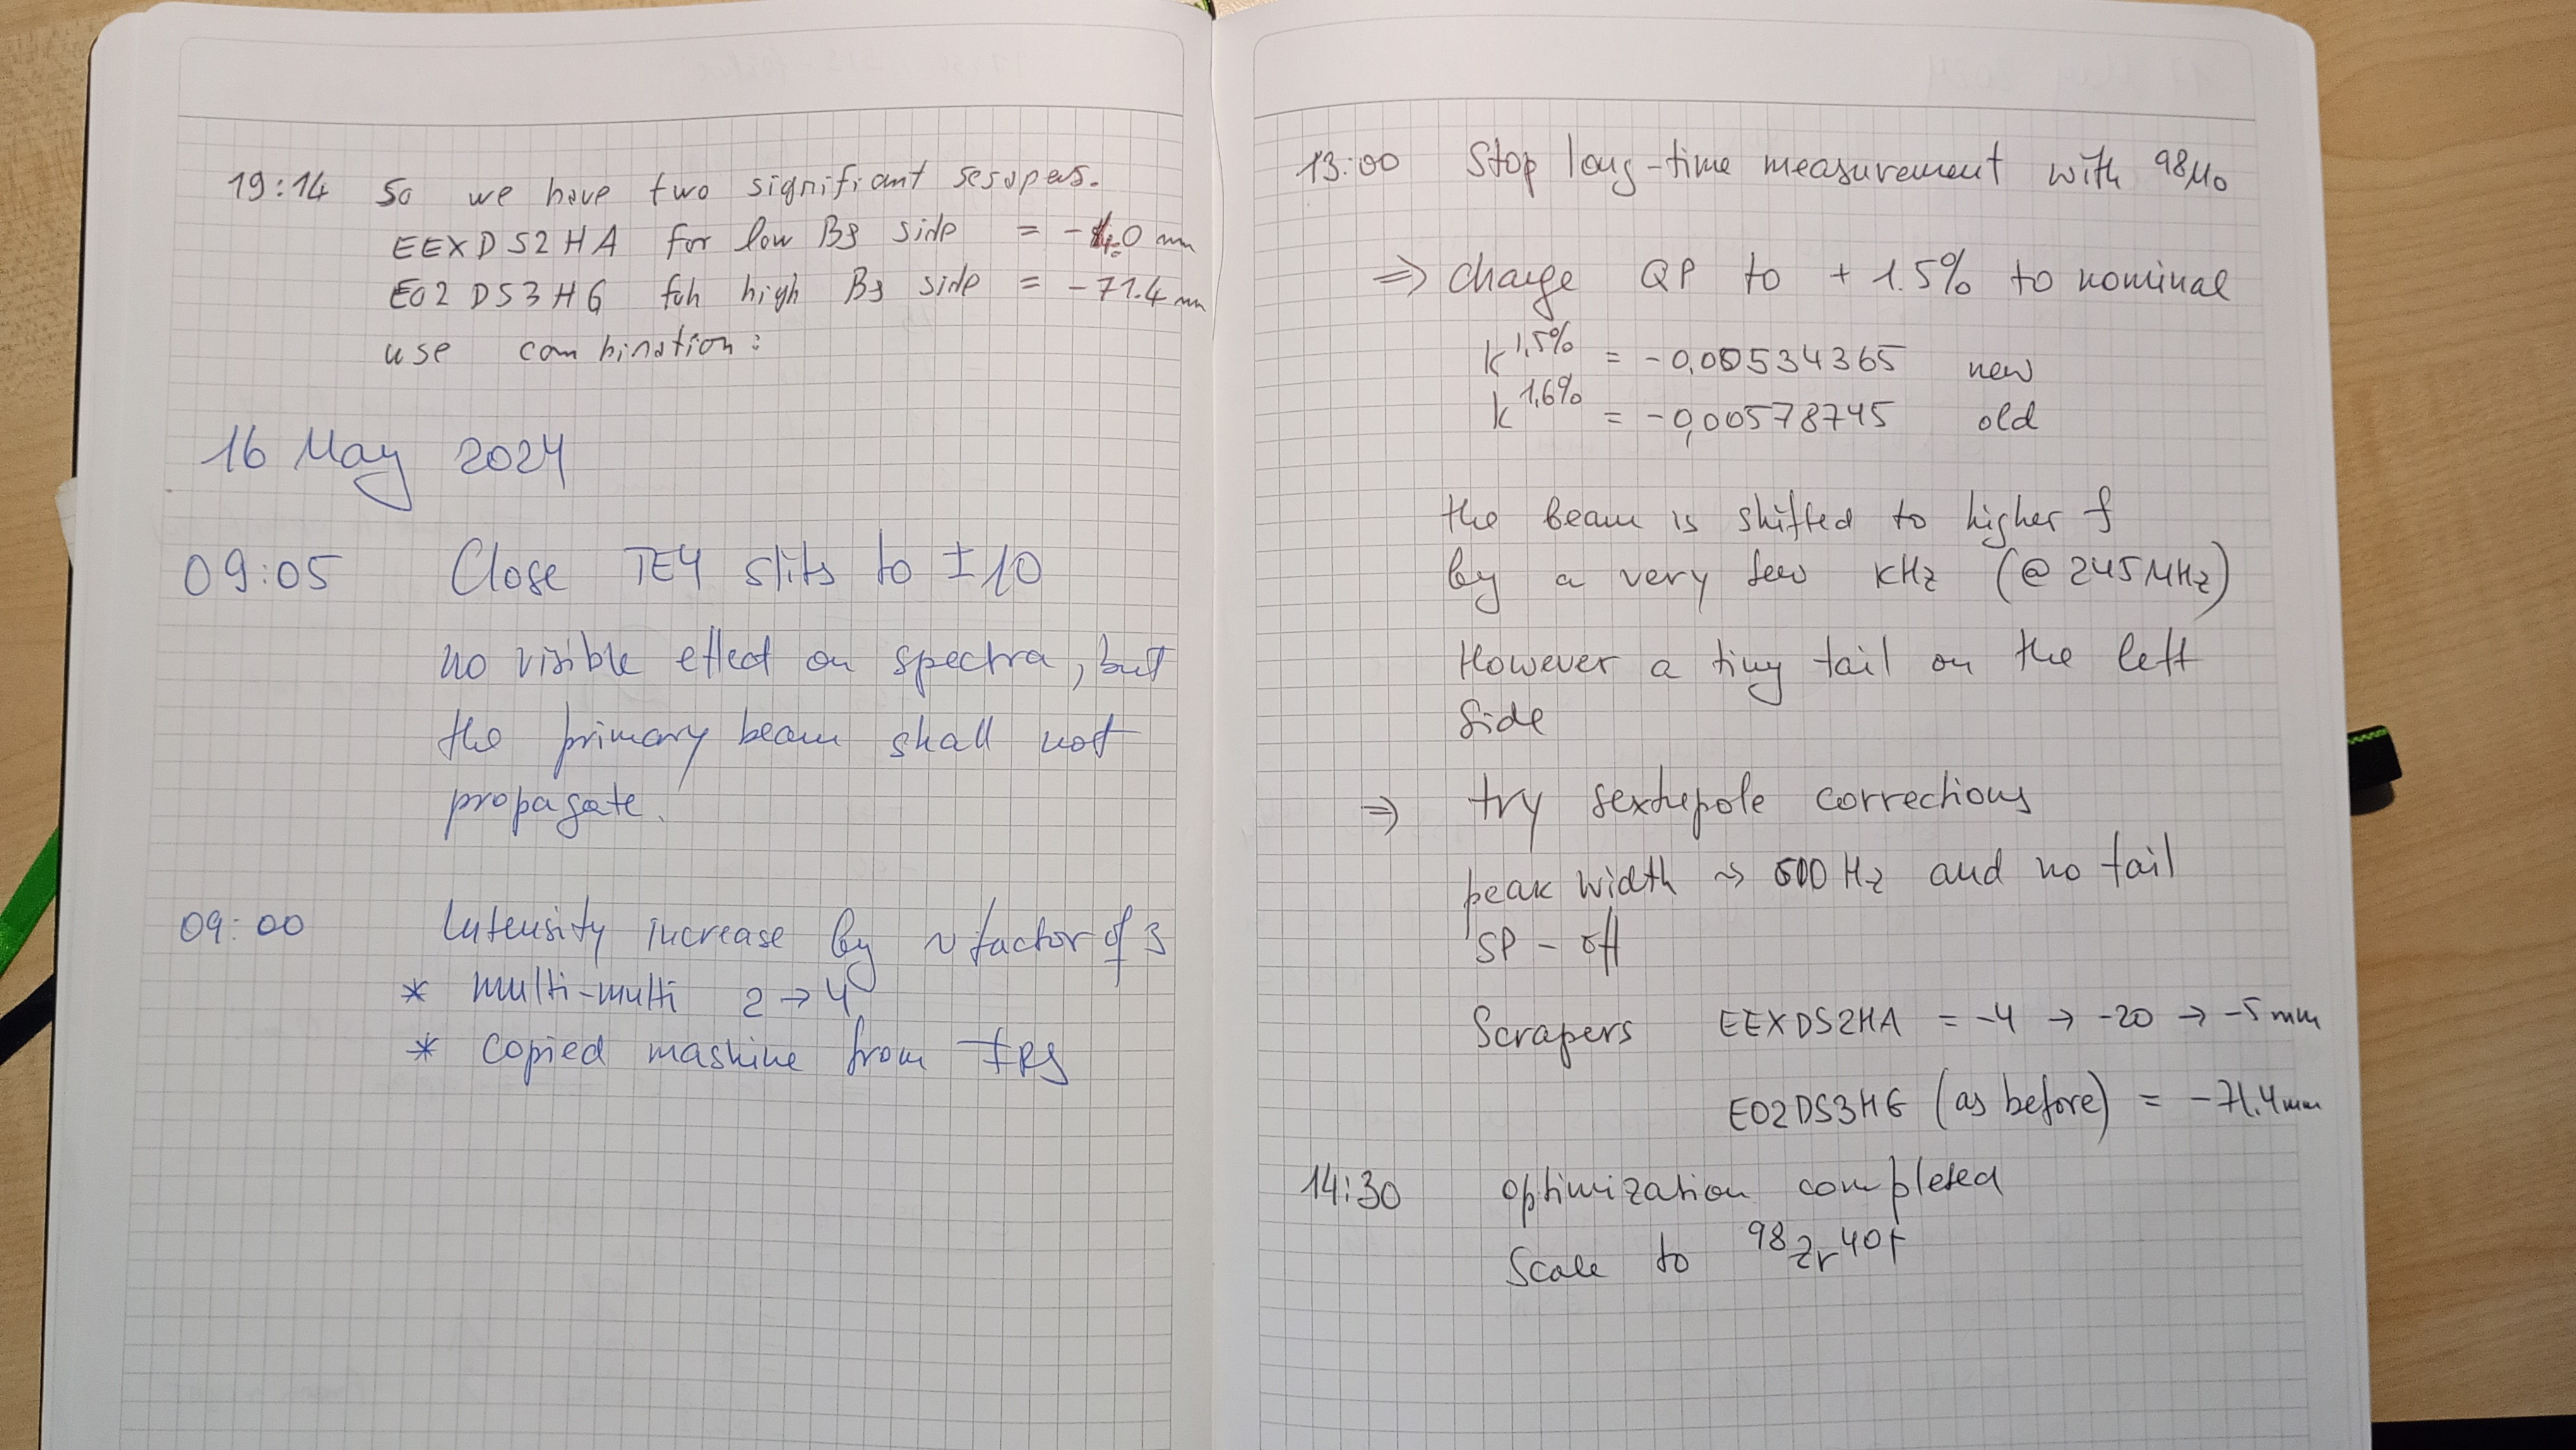 19:14 So we have two signifiant scrapers.
EEXDS2HA for low Bρ side = -4.0 mm
E02DS3HG foh high Bρ side = -71.4 mm
use combination:
16 May 2024
09:05 Close TE4 slits to ±10
no visible effect on spectra, but
the primary beam shall not
propagate.
09:00 Intensity increase by ~ factor of 3
* multi-multi 2 → 4
* copied mashine from FRS
13:00 Stop long-time measurement with ⁹⁸Mo
⇒ change QP to +1.5% to nominal
k^1,5% = -0,00534365 new
k^1,6% = -0,00578745 old
the beam is shifted to higher f
by a very few kHz (@ 245 MHz)
However a tiny tail on the left
side
⇒ try sextupole corrections
peak width ~> 500 Hz and no tail
SP - off
Scrapers EEXDS2HA = -4 → -20 → -5 mm
E02DS3HG (as before) = -71.4 mm
14:30 optimization completed
Scale to ⁹⁸Zr⁴⁰⁺